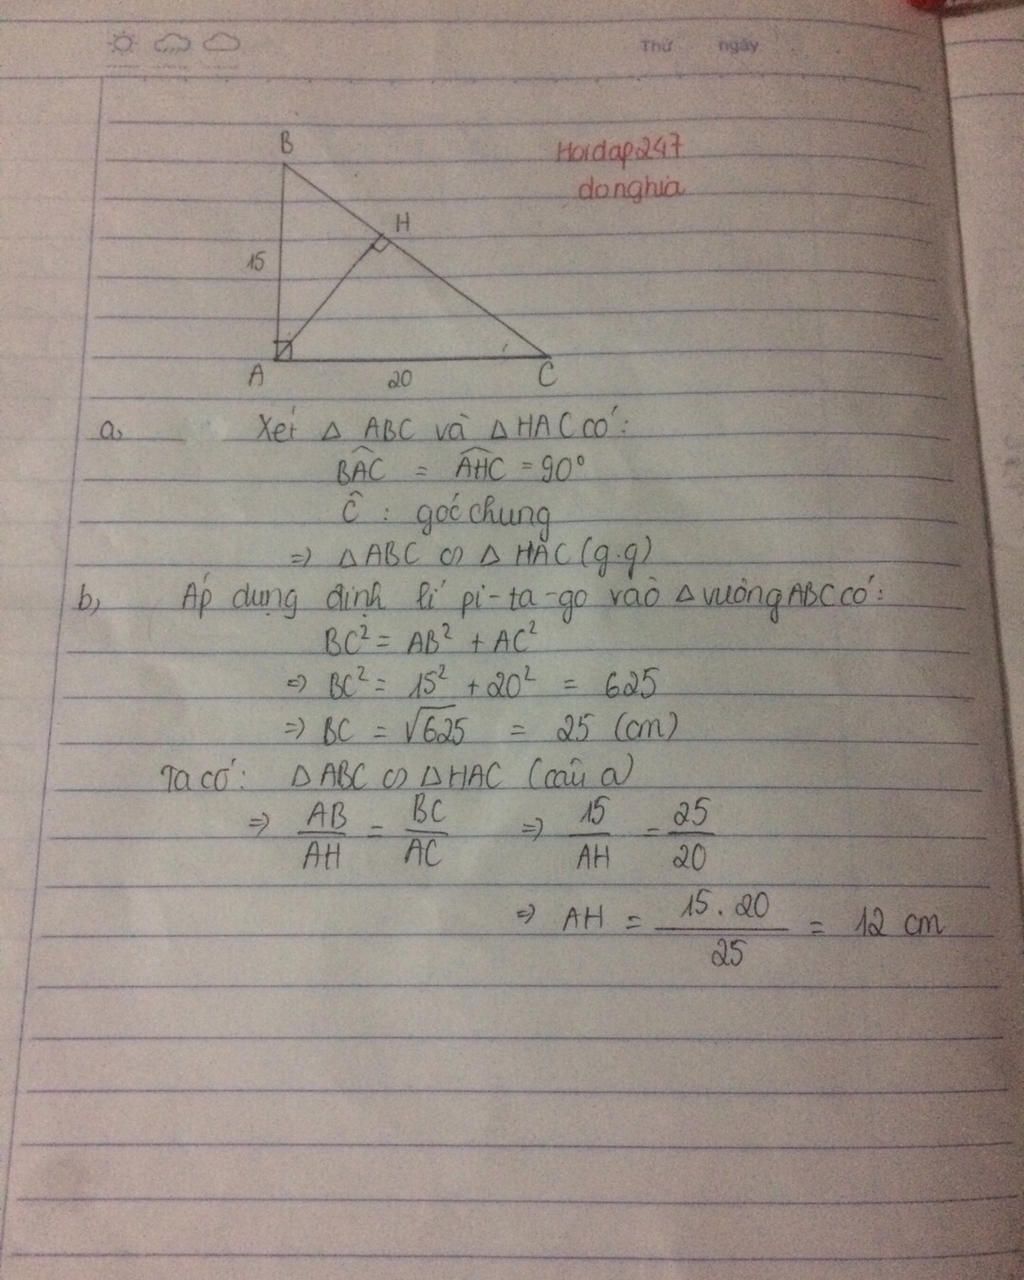 Thứ ngày
Hoidap247
donghia
B
H
15
A
20
C
a, Xét △ ABC và △ HAC có:
BAC^ = AHC^ = 90°
Ĉ : góc chung
⇒ △ABC ∽ △ HAC (g.g)
b, Áp dụng định lí pi-ta-go vào △ vuông ABC có:
BC² = AB² + AC²
⇒ BC² = 15² + 20² = 625
⇒ BC = √625 = 25 (cm)
Ta có: △ABC ∽ △HAC (câu a)
⇒ AB/AH = BC/AC ⇒ 15/AH = 25/20
⇒ AH = 15.20/25 = 12 cm